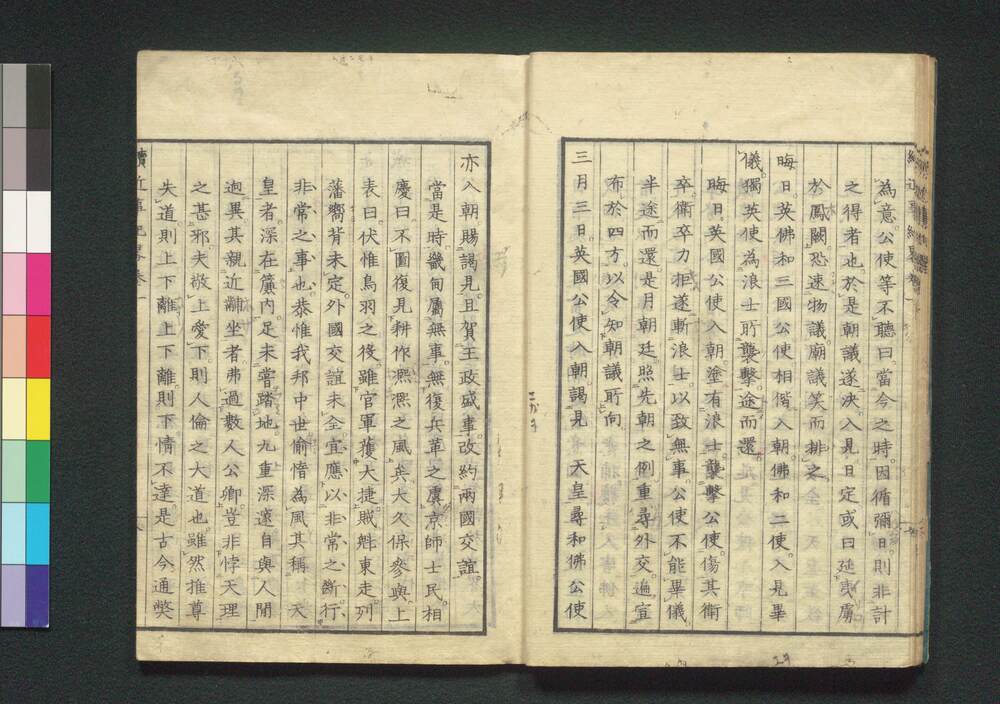 為意。公使等不聽曰當今之時。因循彌日。則非計
之得者也。於是朝議遂決。入見日定。或曰延夷虜
於鳳闕。恐速物議。廟議笑而排之
晦日英佛和三國公使相偕入朝。佛和二使。入見畢
儀。獨英使為浪士所襲擊。途而還。
晦日。英國公使入朝。塗有浪士。襲擊公使。傷其衛
卒。衛卒力拒遂斬浪士。以致無事。公使不能畢儀。
半途而還。是月朝廷。照先朝之例。重尋外交。遍宣
布於四方。以令知朝議所向
三月三日。英國公使入朝謁見 天皇尋和佛公使
亦入朝賜謁見。且賀王政盛事。改約兩國交誼。
當是時。畿甸屬無事。無復兵革之虞。京師士民。相
慶曰。不圖復見耕作熙熙之風矣。大久保參與。上
表曰。伏惟鳥羽之役。雖官軍獲大捷。賊魁東走。列
藩嚮背未定。外國交誼未全。宜應以非常之斷。行
非常之事也。恭惟我邦中世偷惰為風。其稱 天
皇者。深在簾内。足未嘗踏地。九重深遠。自與人間
迥異。其親近 坐者。弗過數人公卿。豈非悖天理
之甚邪。夫敬上愛下。則人倫之大道也。雖然推尊
失道則上下離。上下離則下情不達。是古今通獘
續近事紀畧卷一